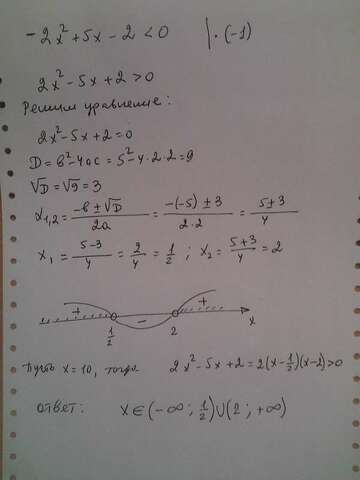 -2x²+5x-2<0 |·(-1)
2x²-5x+2>0
Решим уравнение:
2x²-5x+2=0
D=b²-4ac=5²-4·2·2=9
√D=√9=3
x₁,₂=(-b±√D)/2a=(-(-5)±3)/(2·2)=(5±3)/4
x₁=(5-3)/4=2/4=1/2; x₂=(5+3)/4=2
+ - +
1/2 2 x
Пусть x=10, тогда 2x²-5x+2=2(x-1/2)(x-2)>0
ответ: x∈(-∞;1/2)∪(2;+∞)